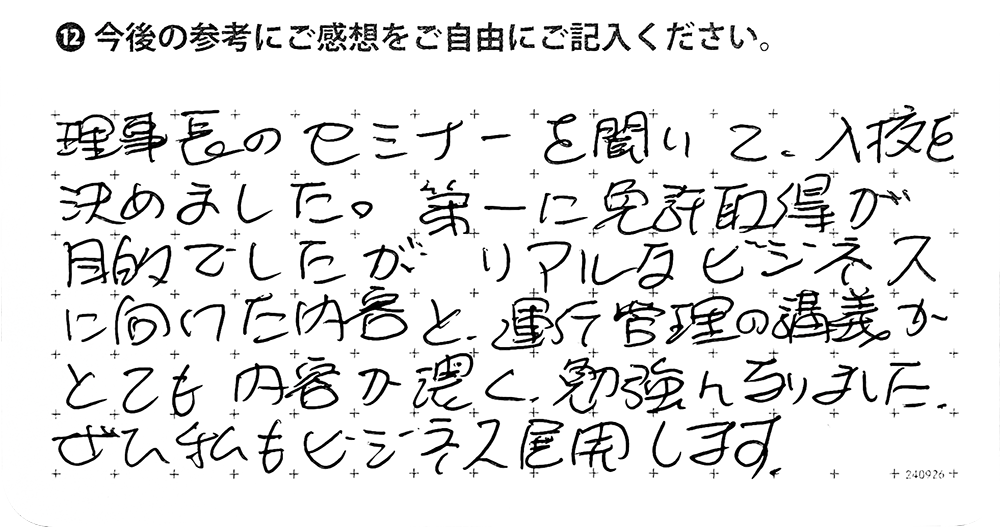 ⓬ 今後の参考にご感想をご自由にご記入ください。
理事長のセミナーを聞いて、入校を
決めました。第一に免許取得が
目的でしたが リアルなビジネス
に向けた内容と、運行管理の講義が
とても内容が濃く、勉強になりました。
ぜひ私もビジネス展開します。
240926